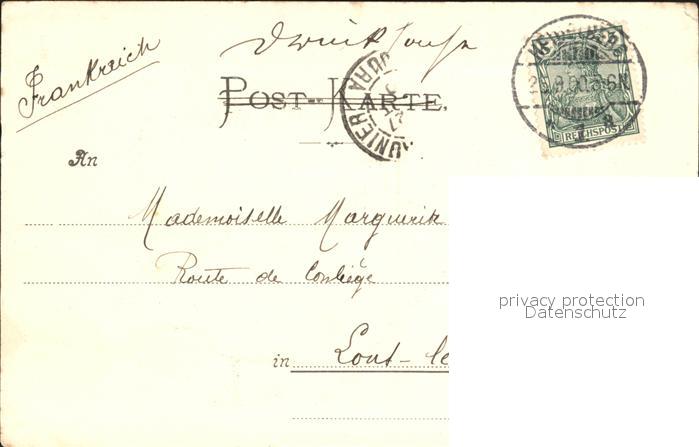 Frankreich
Drucksache
POST-KARTE.
JURA
REICHSPOST
An
Mademoiselle Marguerite
Route de Conliège
privacy protection
Datenschutz
in Lons-le